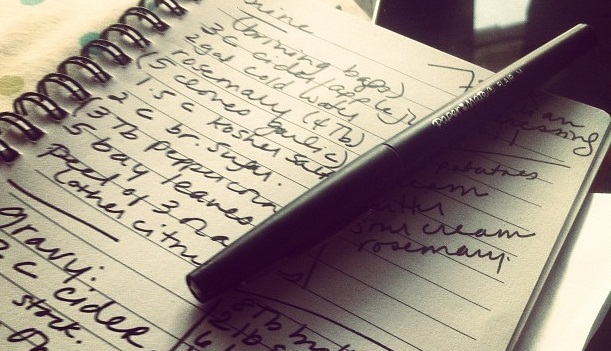 (brining bags)
3 C cider (apple)
2 gal cold water
rosemary (4 Tb)
(5 cloves garlic)
1.5 C kosher salt
2 C br. sugar.
(3 Tb peppercorn
5 bay leaves
peel of 3
(other citru
gravy:
C cider
stock.
Paper Mate
dressing
potatoes
cream
butter
sour cream
rosemary.
8 Tb
2 lbs